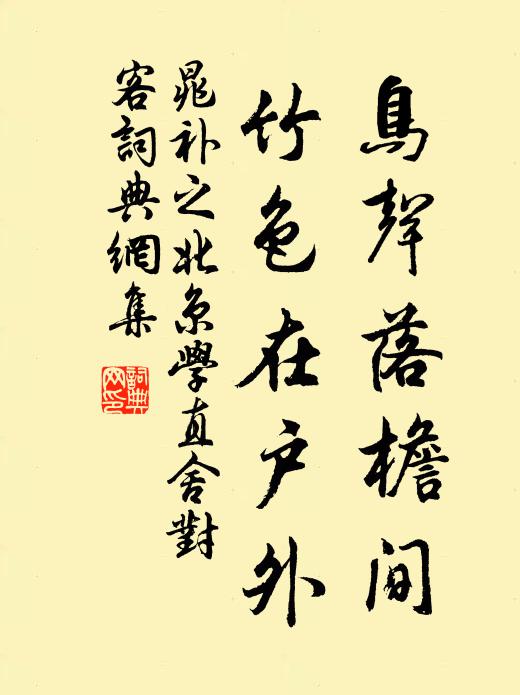 鳥聲落檐间
竹色在户外
晁补之北京學直舍對
客詞典網集
詞典網印